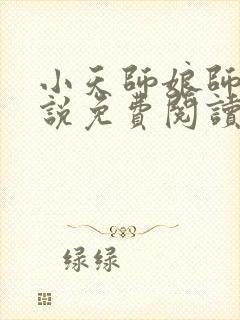 小天師娘師
說免費閱讀
绿绿